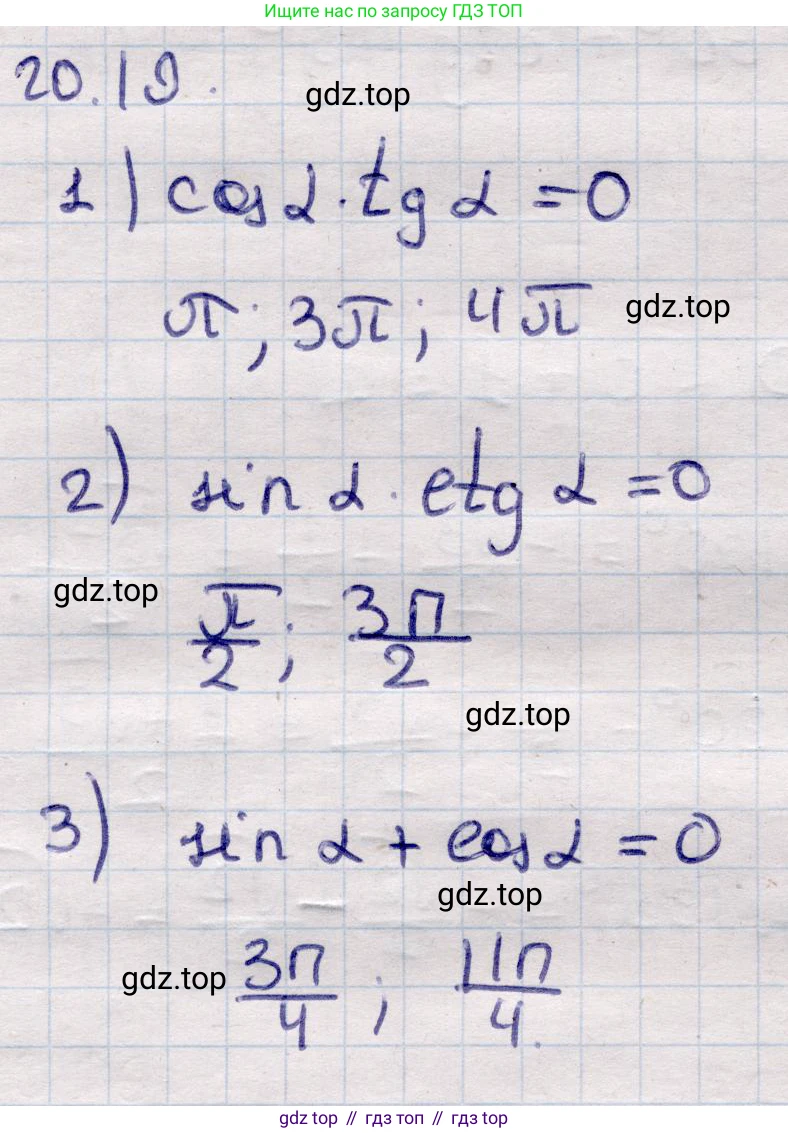 Ищите нас по запросу ГДЗ ТОП
20.19.
gdz.top
1) cos α · tg α = 0
π; 3π; 4π
gdz.top
2) sin α · ctg α = 0
gdz.top
π/2; 3π/2
gdz.top
3) sin α + cos α = 0
gdz.top
gdz.top
3π/4; 11π/4.
gdz top // гдз топ // gdz top